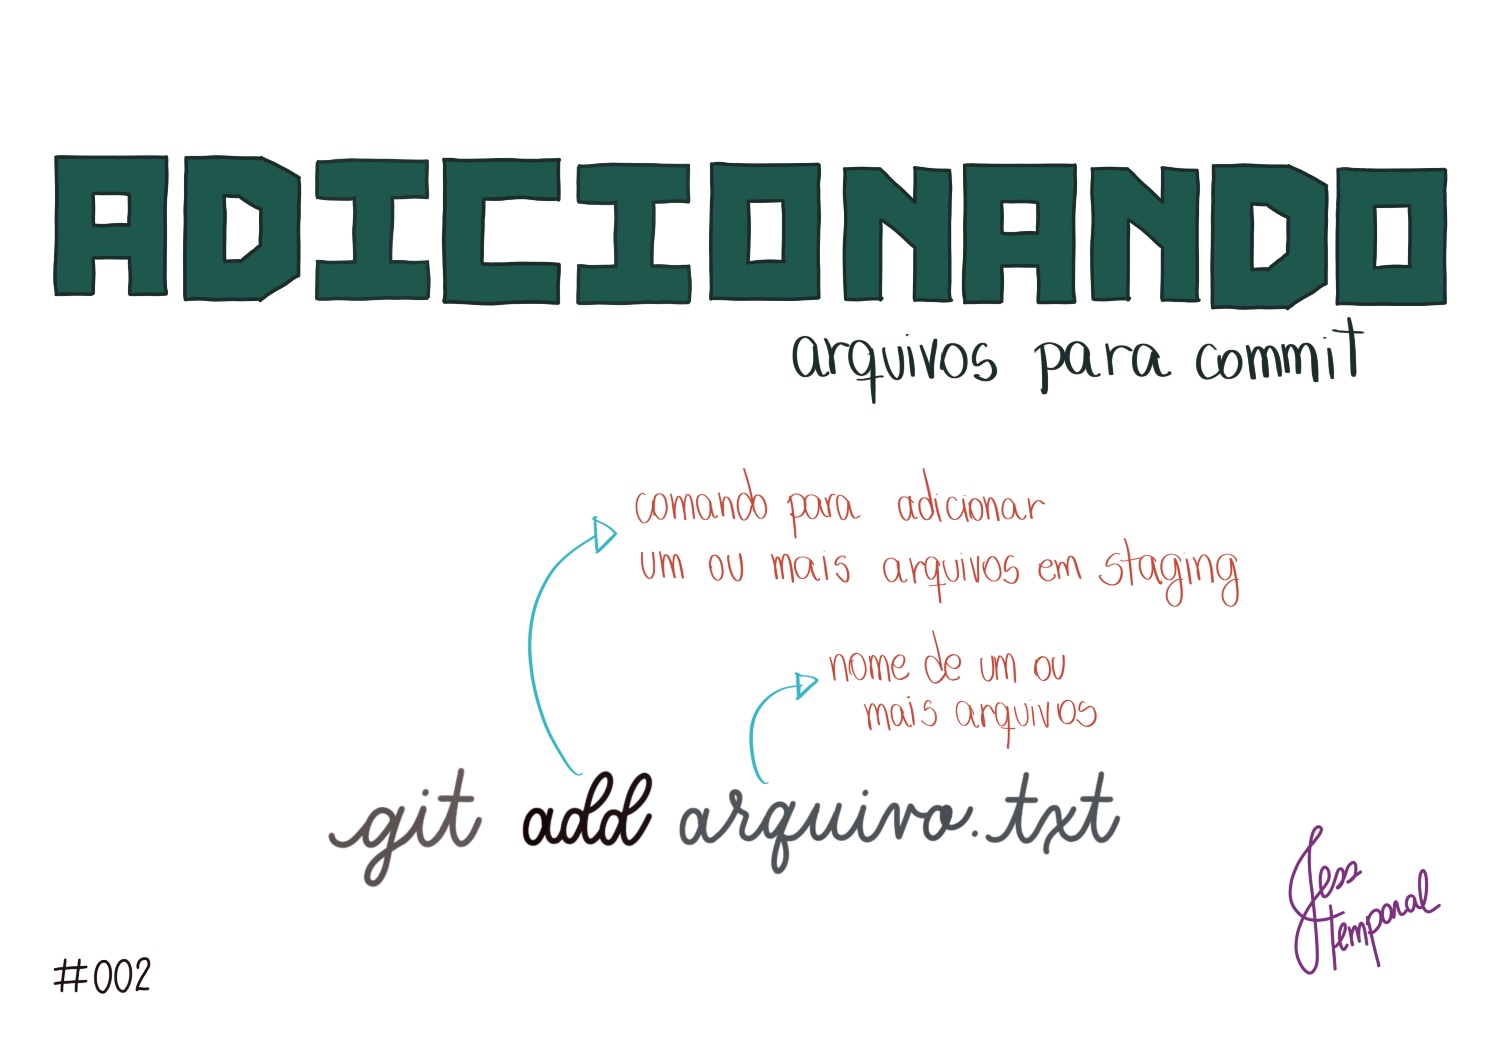 ADICIONANDO
arquivos para commit
comando para adicionar
um ou mais arquivos em staging
nome de um ou
mais arquivos
git add arquivo.txt
Jess
temporal
#002